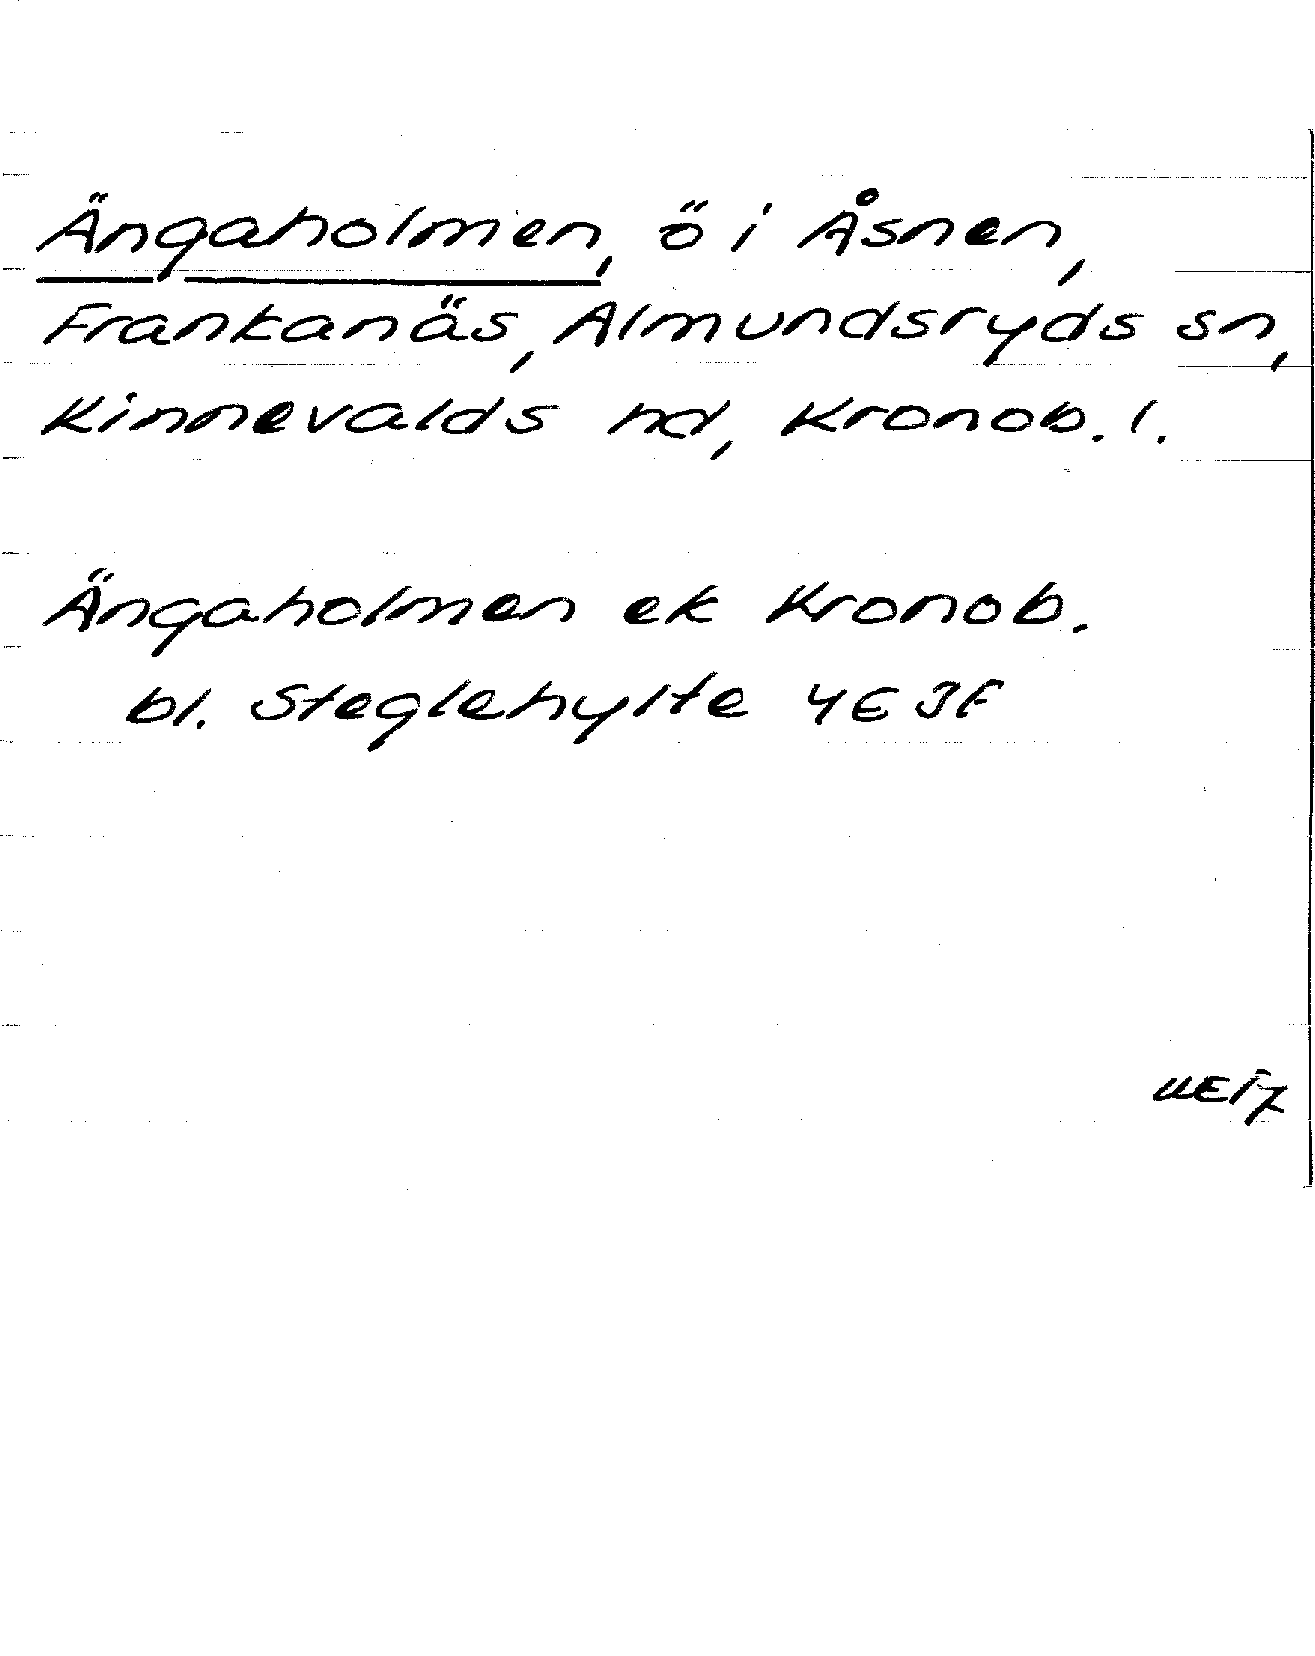 Ängaholmen, ö i Åsnen,
Frankanäs, Almundsryds sn,
Kinnevalds hd, Kronob. l.
Ängaholmen ek Kronob.
bl. Steglehylte 4E 3f